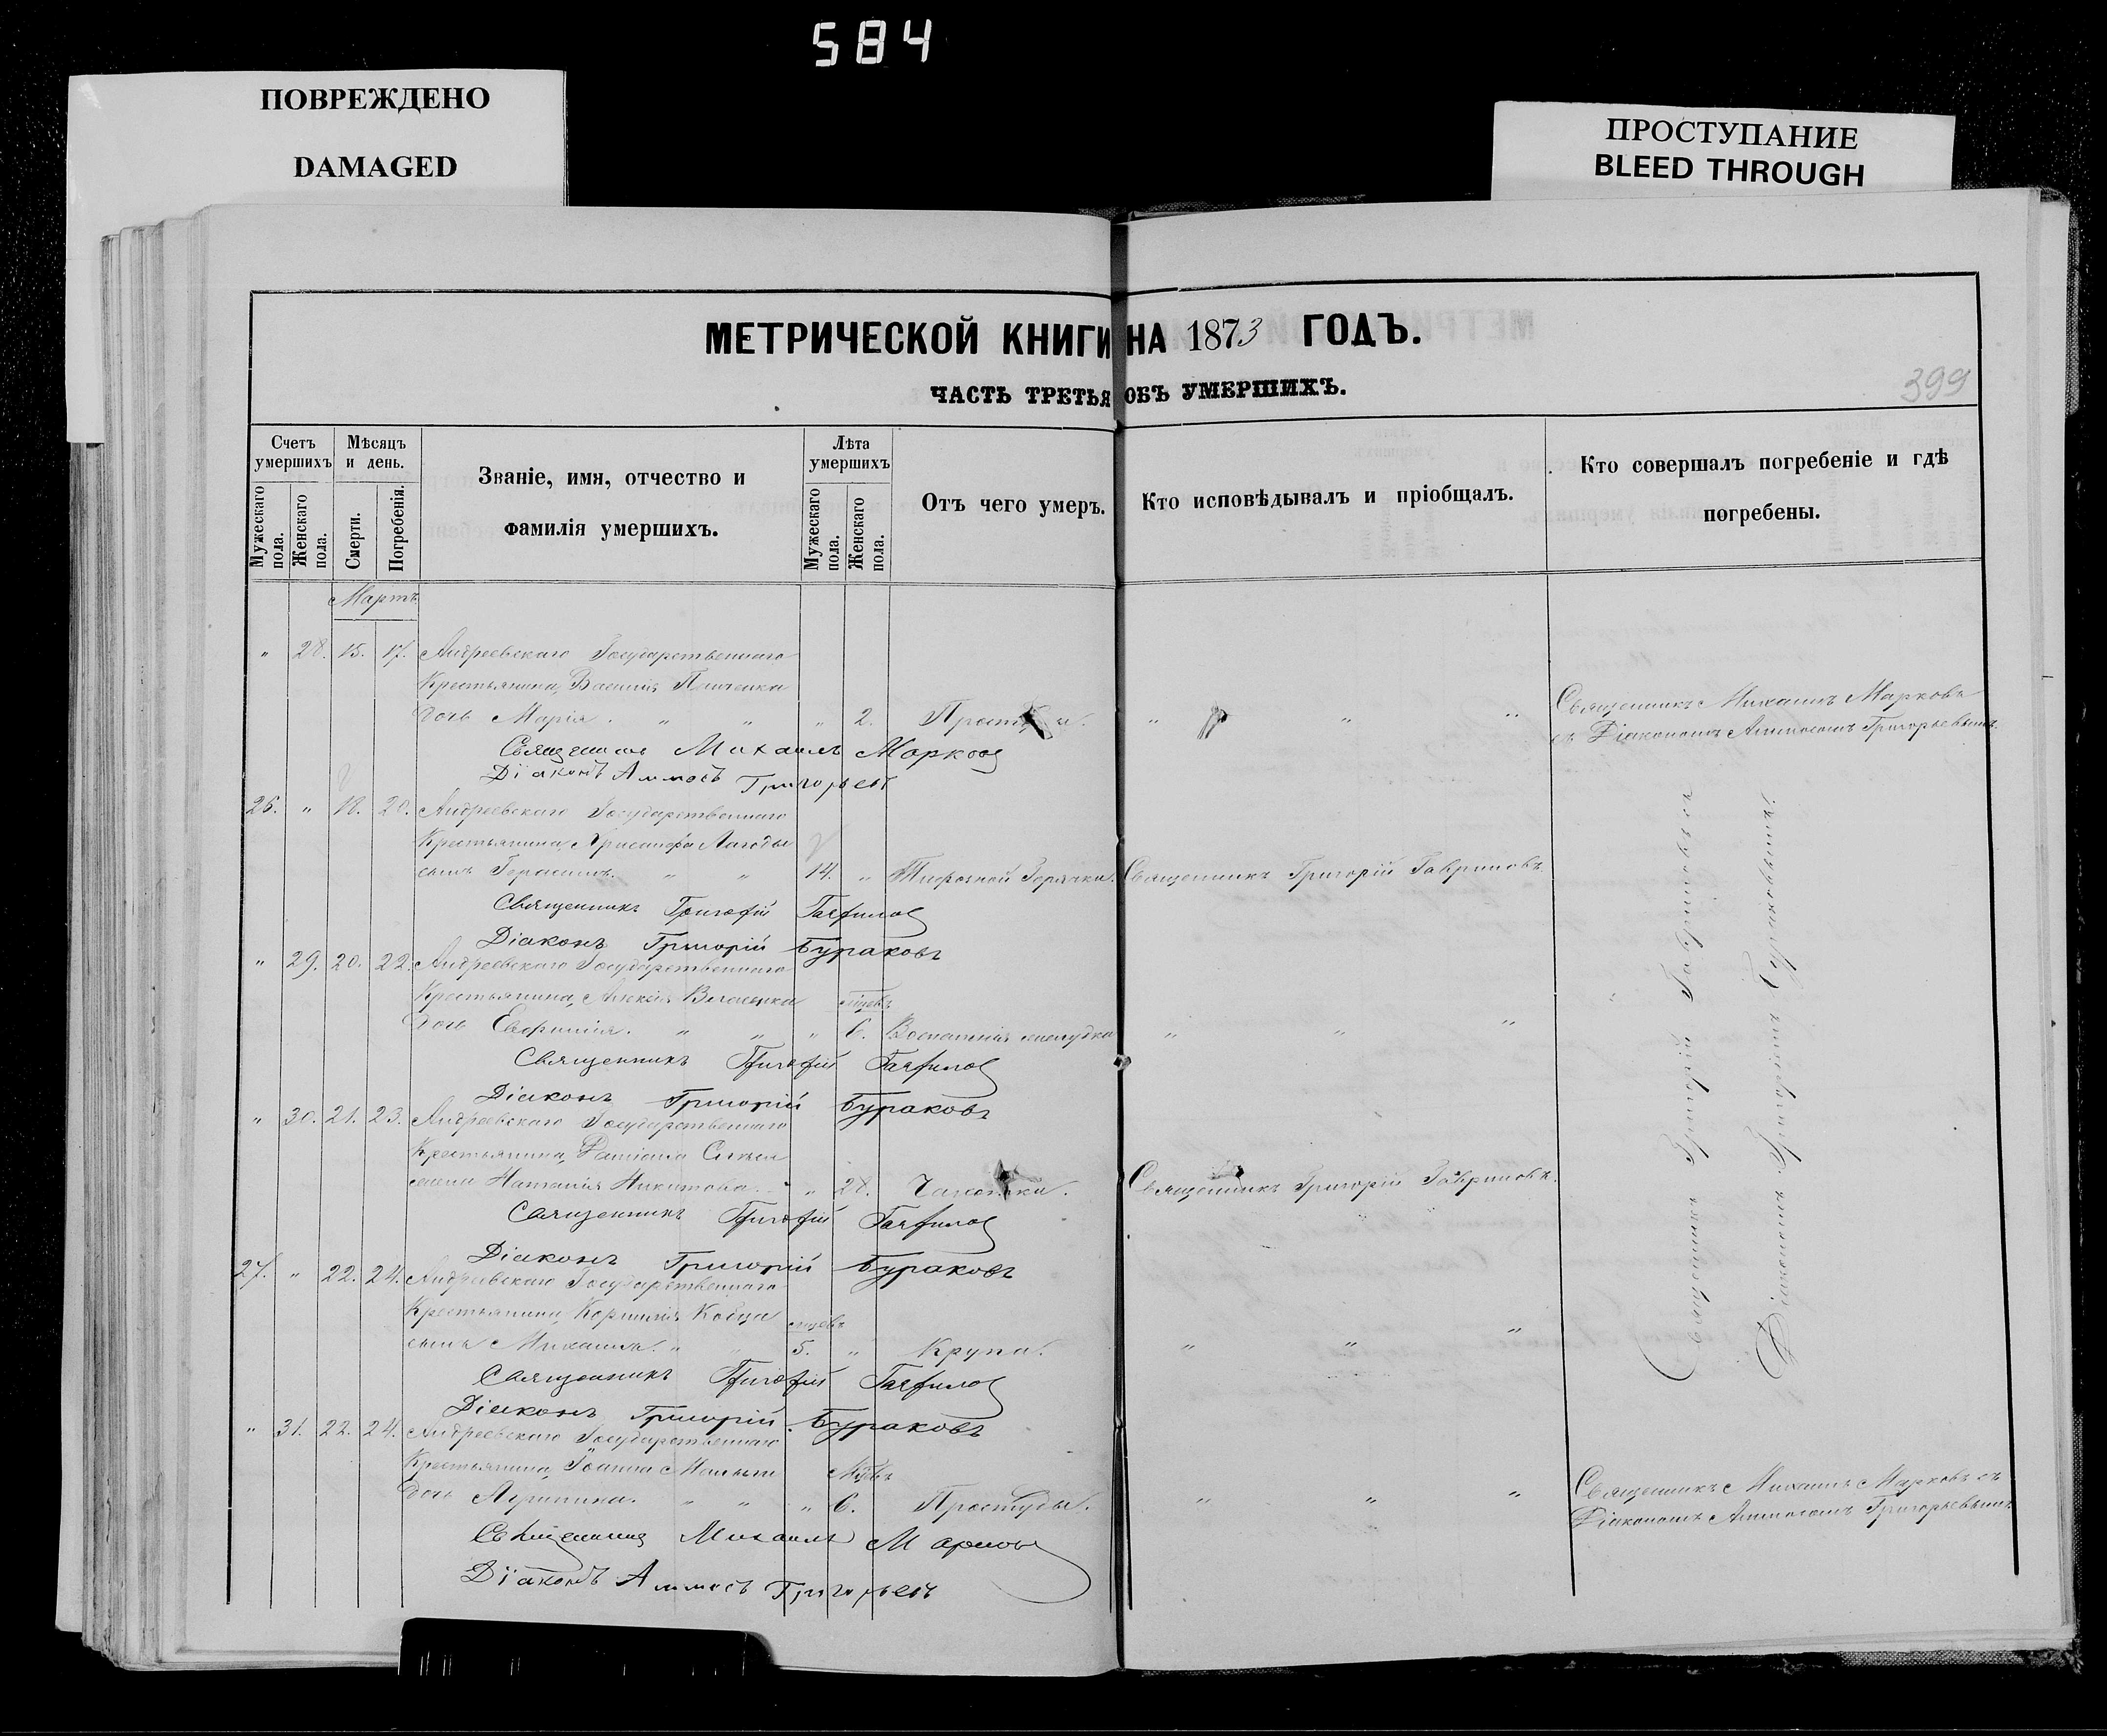 584
ПОВРЕЖДЕНО
DAMAGED
ПРОСТУПАНИЕ
BLEED THROUGH
МЕТРИЧЕСКОЙ КНИГИ НА 1873 ГОДЪ.
ЧАСТЬ ТРЕТЬЯ ОБЪ УМЕРШИХЪ.
399
Счетъ умершихъ
Мужескаго пола.
Женскаго пола.
Мѣсяцъ и день.
Смерти.
Погребенія.
Званіе, имя, отчество и
фамилія умершихъ.
Лѣта умершихъ
Мужескаго пола.
Женскаго пола.
Отъ чего умеръ.
Кто исповѣдывалъ и пріобщалъ.
Кто совершалъ погребеніе и гдѣ
погребены.
Мартъ
" 28. 15. 17. Андреевскаго Государственнаго
Крестьянина, Василія
дочь Марія. " " " 2. " " "
Священникъ Михаилъ Марковъ
съ Діакономъ Аммосомъ Григорьевымъ.
Священникъ Михаилъ Марковъ
Діаконъ Аммосъ Григорьевъ
26. " 18. 20. Андреевскаго Государственнаго
Крестьянина, Хрисанфа Лагоды
сынъ Герасимъ. " " 14. " Тифозной Горячки. Священникъ Григорій Гавриловъ.
Священникъ Григорій Гавриловъ
Діаконъ Григорій Бураковъ
" 29. 20. 22. Андреевскаго Государственнаго
Крестьянина, Алексія мѣсяцъ
дочь Евфимія. " " " 6. Воспаленія желудка " " "
Священникъ Григорій Гавриловъ
Діаконъ Григорій Бураковъ
" 30. 21. 23. Андреевскаго Государственнаго
Крестьянина, Даміана
жена Наталія Никитова. " " 28. Чахотки. Священникъ Григорій Гавриловъ.
Священникъ Григорій Гавриловъ
Діаконъ Григорій Бураковъ
27. " 22. 24. Андреевскаго Государственнаго
Крестьянина, Корнилія Кобца мѣсяцъ
сынъ Михаилъ. " " 5. " Крупа. " " "
Священникъ Григорій Гавриловъ
Діаконъ Григорій Бураковъ
Священникъ Григорій Гавриловъ съ
Діакономъ Григоріемъ Бураковымъ.
" 31. 22. 24. Андреевскаго Государственнаго
Крестьянина, Іоанна
дочь Агрипина. " " " 6. Простуды. " " "
Священникъ Михаилъ Марковъ съ
Діакономъ Аммосомъ Григорьевымъ.
Священникъ Михаилъ Марковъ
Діаконъ Аммосъ Григорьевъ